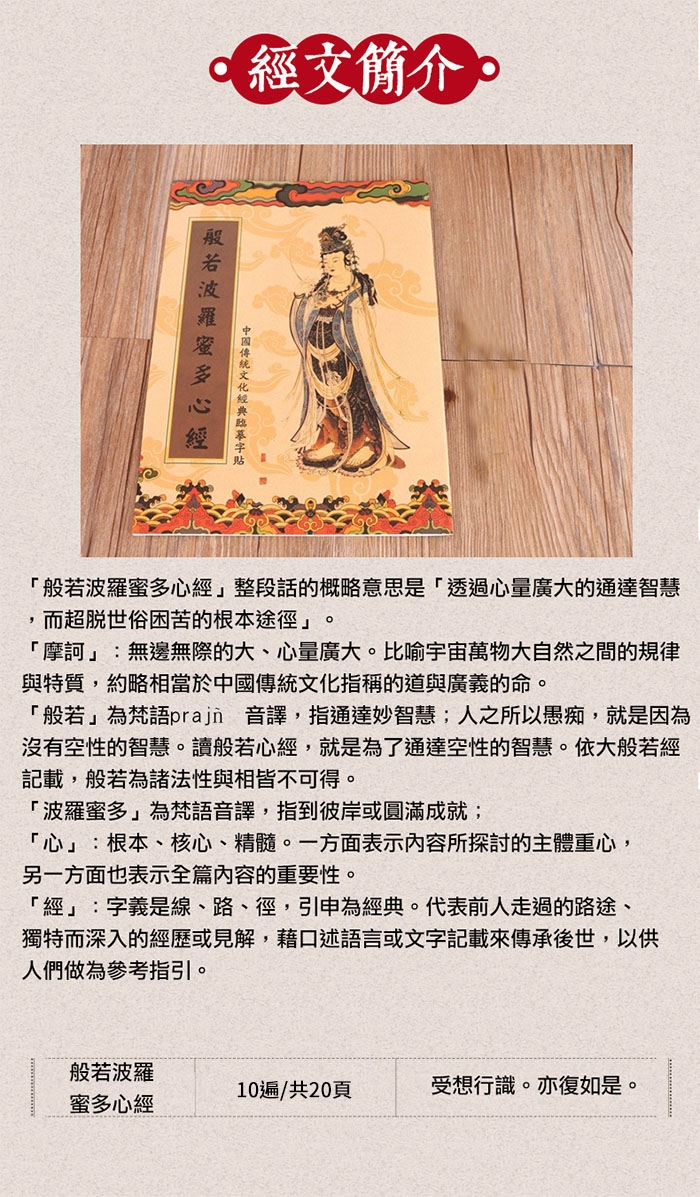 經文簡介
般若波羅蜜多心經
中國傳統文化經典臨摹字貼
「般若波羅蜜多心經」整段話的概略意思是「透過心量廣大的通達智慧
，而超脱世俗困苦的根本途徑」。
「摩訶」：無邊無際的大、心量廣大。比喻宇宙萬物大自然之間的規律
與特質，約略相當於中國傳統文化指稱的道與廣義的命。
「般若」為梵語prajñ 音譯，指通達妙智慧；人之所以愚痴，就是因為
沒有空性的智慧。讀般若心經，就是為了通達空性的智慧。依大般若經
記載，般若為諸法性與相皆不可得。
「波羅蜜多」為梵語音譯，指到彼岸或圓滿成就；
「心」：根本、核心、精髓。一方面表示內容所探討的主體重心，
另一方面也表示全篇內容的重要性。
「經」：字義是線、路、徑，引申為經典。代表前人走過的路途、
獨特而深入的經歷或見解，藉口述語言或文字記載來傳承後世，以供
人們做為參考指引。
般若波羅
蜜多心經
10遍/共20頁
受想行識。亦復如是。